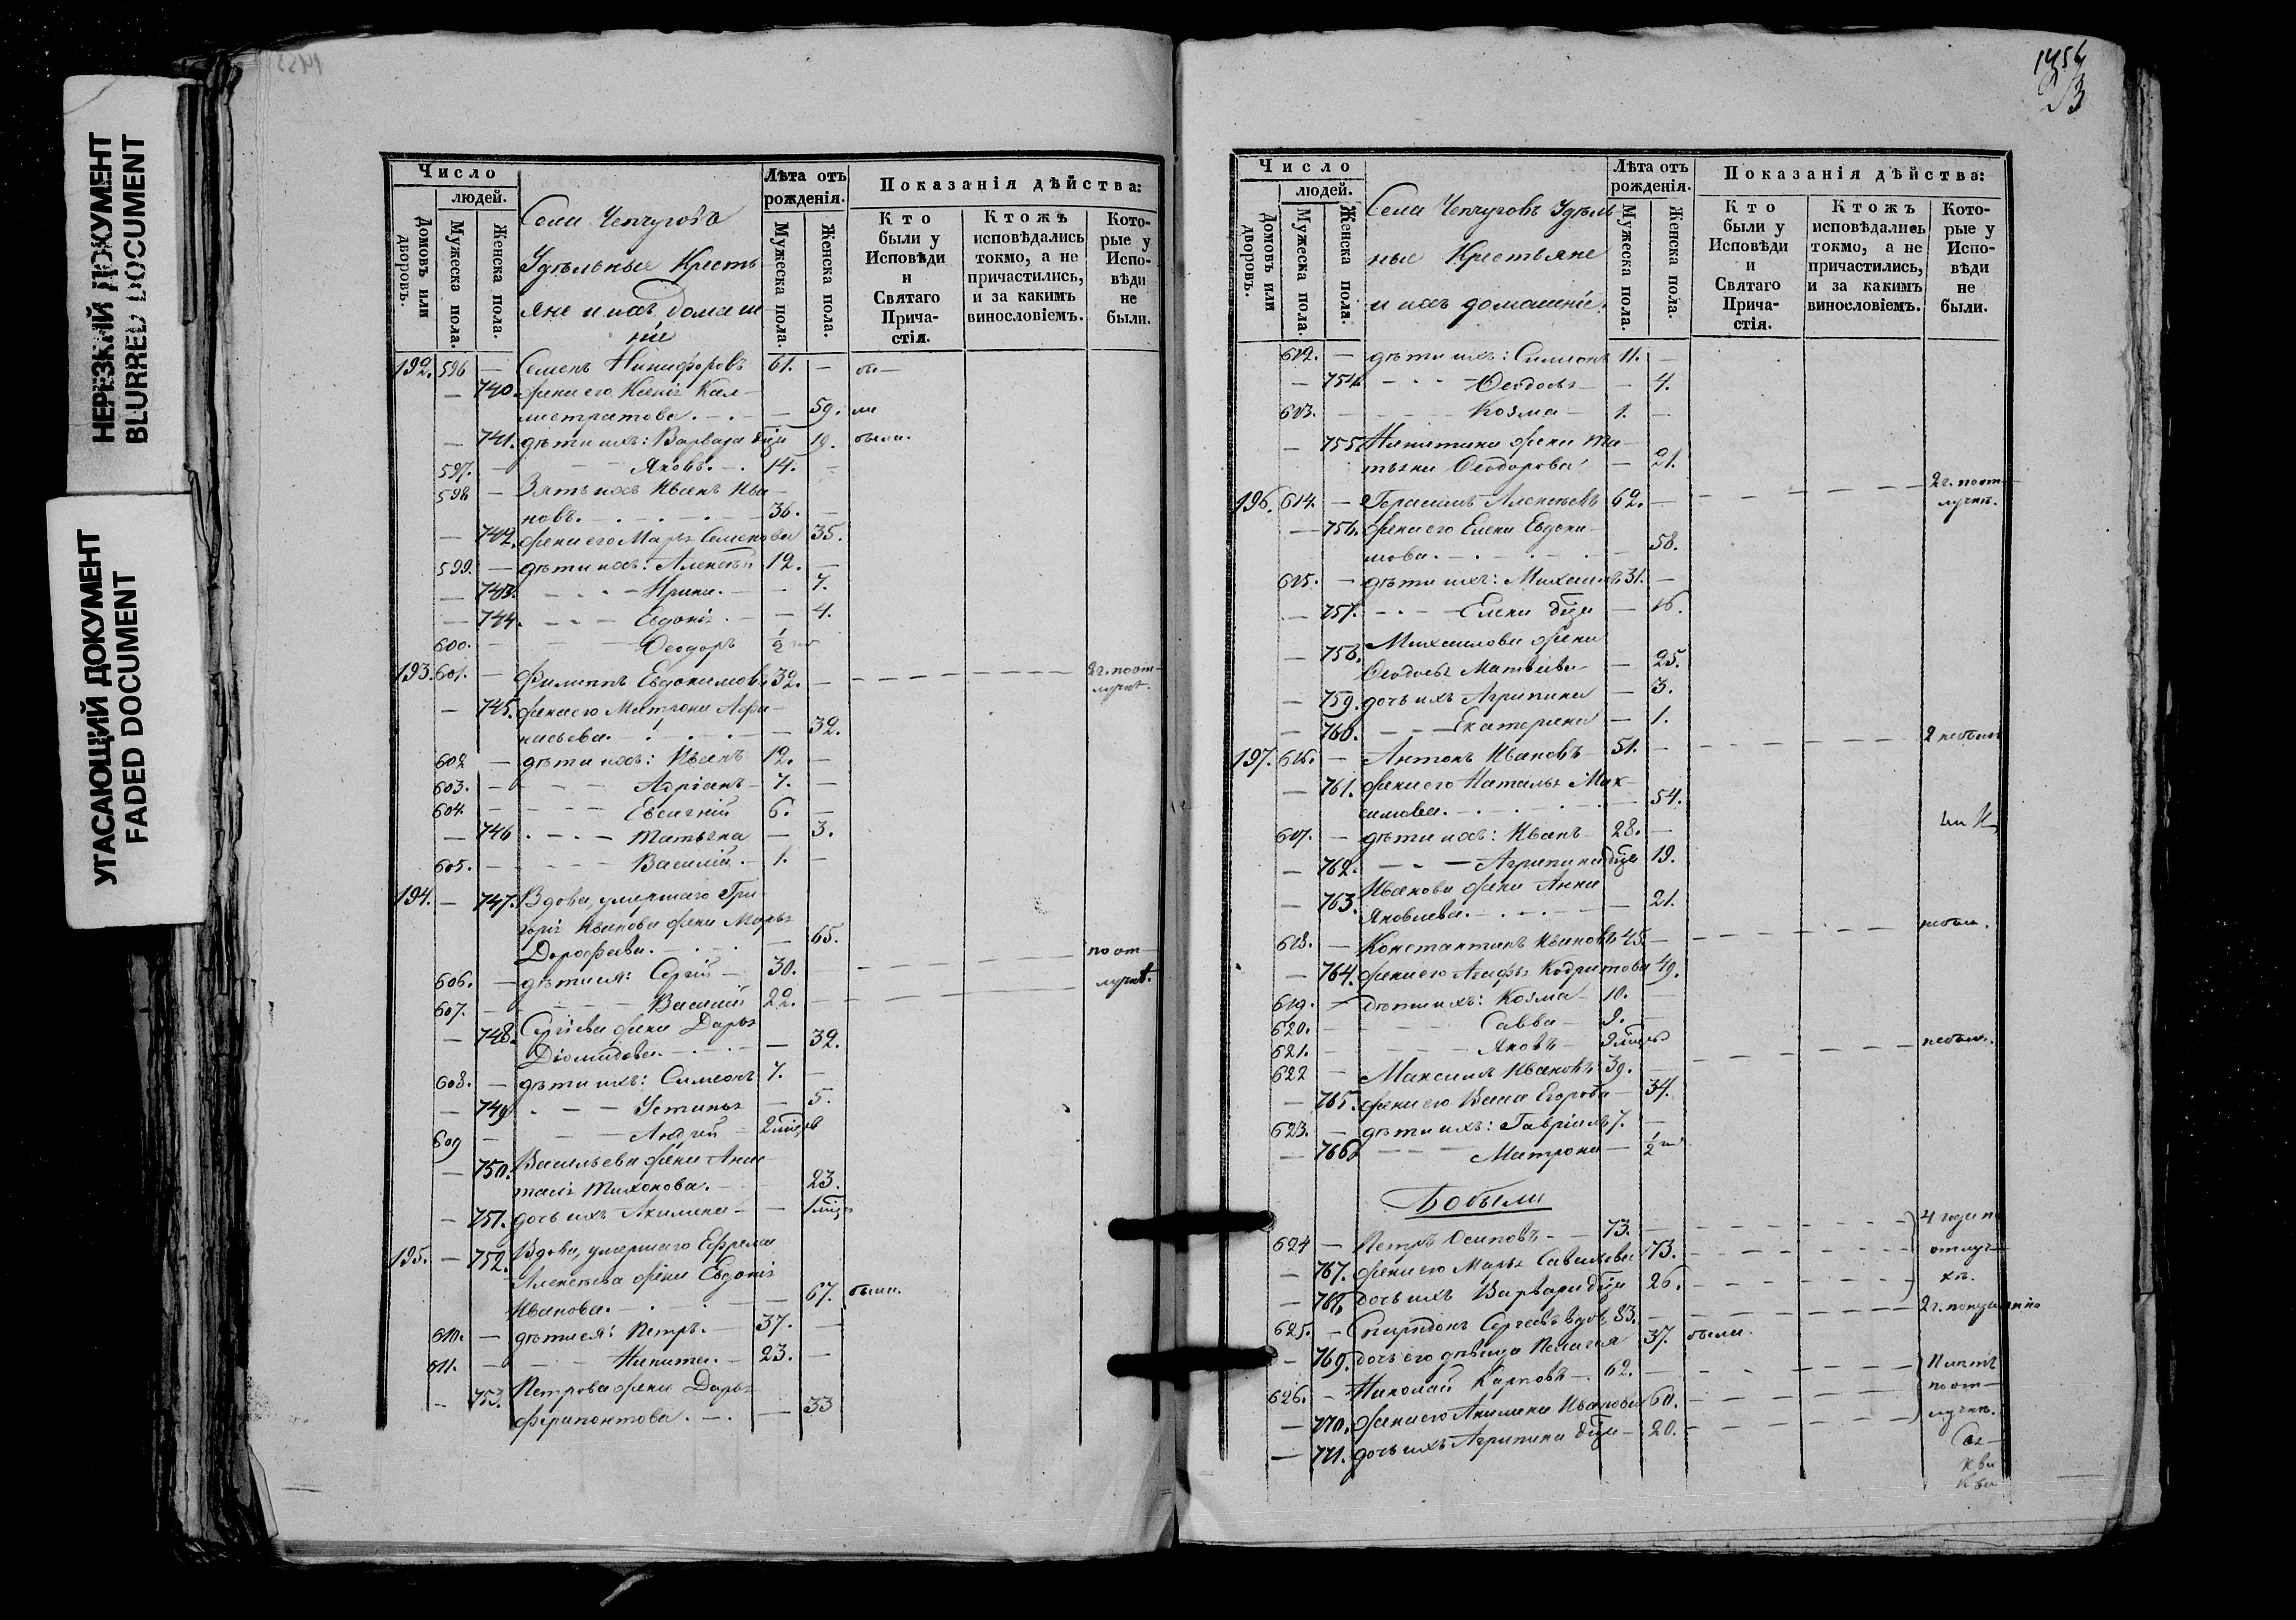 НЕРЕЗКИЙ ДОКУМЕНТ
BLURRED DOCUMENT
УГАСАЮЩИЙ ДОКУМЕНТ
FADED DOCUMENT
Число
людей.
Домовъ или дворовъ.
Мужеска пола.
Женска пола.
Села Чепчугова
Удѣльные Кресть
яне и ихъ домаш
ніе
Лѣта отъ рожденія.
Мужеска пола.
Женска пола.
Показанія дѣйства:
Кто были у Исповѣди и Святаго Прича- стія.
Ктожъ исповѣдались токмо, а не причастились, и за какимъ винословіемъ.
Кото- рые у Испо- вѣди не были.
192. 596 — Семенъ Никифоровъ 61. — бы—
— 740. жена его Ксенія Кал—
листратова. — 59. ли
— 741. дѣти ихъ: Варвара дѣца 19. были.
597. — Яковъ. 14. —
598 — Зять ихъ Иванъ Ива—
новъ. 36. —
— 742. жена его Марья Семенова 35.
599. — дѣти ихъ: Алексѣй 12. —
— 743. Ирина. — 7.
— 744. Евдокія — 4.
600. — Ѳеодоръ ½ го
193. 601. — Филиппъ Евдокимовъ 32. — 2 г. по от—
лучкѣ.
— 745. жена его Матрона Афа—
насьева. — 32.
602 — дѣти ихъ: Иванъ 12. —
603. — Адріанъ 7. —
604. Евсигній 6. —
— 746 Татьяна — 3.
605. — Василій 1. —
194. — 747. Вдова, умершаго Гри
горія Иванова жена Марья
Дорофеева. — 65.
по от—
606. — дѣти ея: Сергій 30. — лучкѣ.
607. — Василій 22. —
— 748. Сергіева жена Дарья
Діомидова. — 32.
608. — дѣти ихъ: Симеонъ 7. —
— 749 Устинья — 5.
609 — Андрей 2 мѣсц
— 750. Васильева жена Анас
тасія Тихонова. 23.
— 751. дочь ихъ Акилина — 1 мѣсц
195. — 752. Вдова, умершаго Ефрема
Алексѣева жена Евдокія
Иванова. — 67. были.
610. — дѣти ея: Петръ. 37. —
611. — Никита. 23. —
— 753. Петрова жена Дарья
Ферапонтова. — 33
1456
Число
людей.
Домовъ или дворовъ.
Мужеска пола.
Женска пола.
Села Чепчуговъ Удѣль
ные Крестьяне
и ихъ домашніе.
Лѣта отъ рожденія.
Мужеска пола.
Женска пола.
Показанія дѣйства:
Кто были у Исповѣди и Святаго Прича- стія.
Ктожъ исповѣдались токмо, а не причастились, и за какимъ винословіемъ.
Кото- рые у Испо- вѣди не были.
612. — дѣти ихъ: Симеонъ 11. —
— 754. Ѳеодосья — 4.
613. — Козма 1. —
— 755. Никитина жена Та—
тьяна Ѳеодорова — 21.
2 г. по от—
196. 614. — Герасимъ Алексѣевъ 62. — лучкѣ.
— 756. жена его Елена Евдоки—
мова. — 58.
615. — дѣти ихъ: Михаилъ 31. —
— 757. Елена дѣца — 16.
— 758. Михаилова жена
Ѳеодосья Матвѣева — 25.
— 759. дочь ихъ Агрипина — 3.
— 760. Екатерина — 1.
197. 616. — Антонъ Ивановъ 51. — 2 небылъ
— 761. жена его Наталья Мак—
симова. — 54.
617. — дѣти ихъ: Иванъ 28. —
— 762. Агрипина дѣца 19.
— 763. Иванова жена Анна
Яковлева. — 21.
618. — Константинъ Ивановъ 45. — небыл.
— 764. жена его Агафья Кодратова 49.
619. — дѣти ихъ: Козма 10. —
620. — Савва 9. —
621. — Яковъ
622 — Максимъ Ивановъ 39. — небылъ.
— 765. жена его Васса Егорова 34.
623. — дѣти ихъ: Гавріилъ 7. —
— 766 Матрона — ½ го
Бобыли
624 — Петръ Осиповъ 73. — 4 года по
— 767. жена его Марья Савельева 73. отлуч—
— 768. дочь ихъ Варвара дѣца 26. кѣ.
625. — Спиридонъ Сергѣевъ вдов. 83. — 2 г.
— 769. дочь его дѣвица Пелагея 37. были.
626. — Николай Карповъ 62. —
— 770. жена его Акилина Иванова 60. по от—
— 771. дочь ихъ Агрипина дѣца 20. лучкѣ.